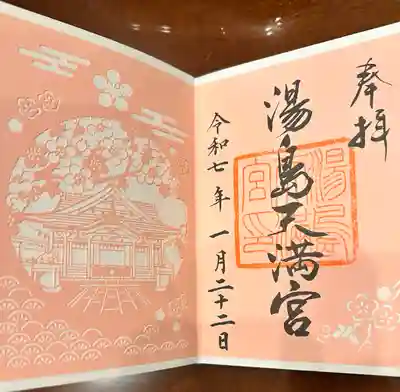 奉拝
湯島天満宮
湯島
宮印
令和七年一月二十二日